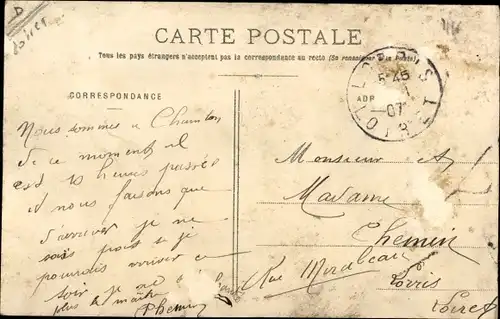 D
Loiret
CARTE POSTALE
Tous les pays étrangers n'acceptent pas la correspondance au recto (Se renseigner à la Poste)
CORRESPONDANCE
LORRIS
5-45
07
LOIRET
Nous sommes à
ce moment il
est 10 heures passées
et nous faisons que
d'arriver je ne
sais pas si je
pourrais arriver ce
soir je ne
plus le
Chemin
Monsieur et
Madame
Chemin
Rue Mirabeau
Lorris
Loiret